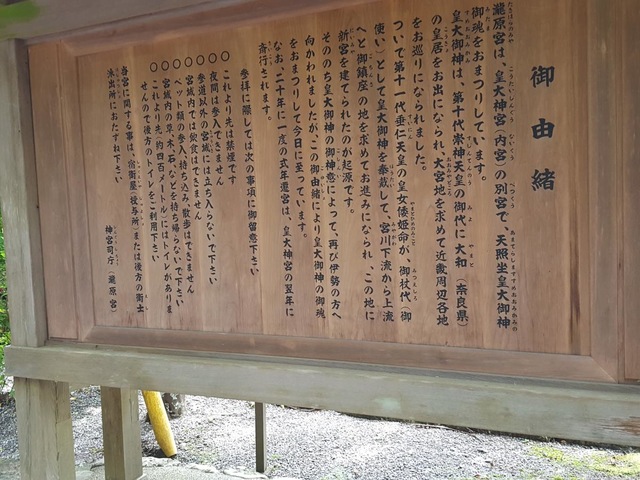 御由緒
瀧原宮は、皇大神宮(内宮)の別宮で、天照坐皇大御神
御魂をおまつりしています。
皇大御神は、第十代崇神天皇の御代に大和(奈良県)
の皇居をお出になられ、大宮地を求めて近畿周辺各地
をお巡りになられました。
ついで第十一代垂仁天皇の皇女倭姫命が、御杖代(御
使い)として皇大御神を奉戴して、宮川下流から上流
へと御鎮座の地を求めてお進みになられ、この地に
新宮を建てられたのが起源です。
そののち皇大御神の御神意によって、再び伊勢の方へ
向かわれましたが、この御由緒により皇大御神の御魂
をおまつりして今日に至っています。
なお、二十年に一度の式年遷宮は、皇大神宮の翌年に
斎行されます。
参拝に際しては次の事項に御留意下さい
〇これより先は禁煙です
〇夜間は参入できません
〇参道以外の宮域には立ち入らないで下さい
〇宮域内では飲食はできません
〇ペット類の参入、持ち込み、散歩はできません
〇宮域内の草、木、石、などを持ち帰らないで下さい
〇これより先、約四百メートルにはトイレがありま
せんので後方のトイレをご利用下さい
当宮に関する事は、宿衛屋(授与所)または後方の衛士
派出所におたずね下さい
神宮司庁(瀧原宮)